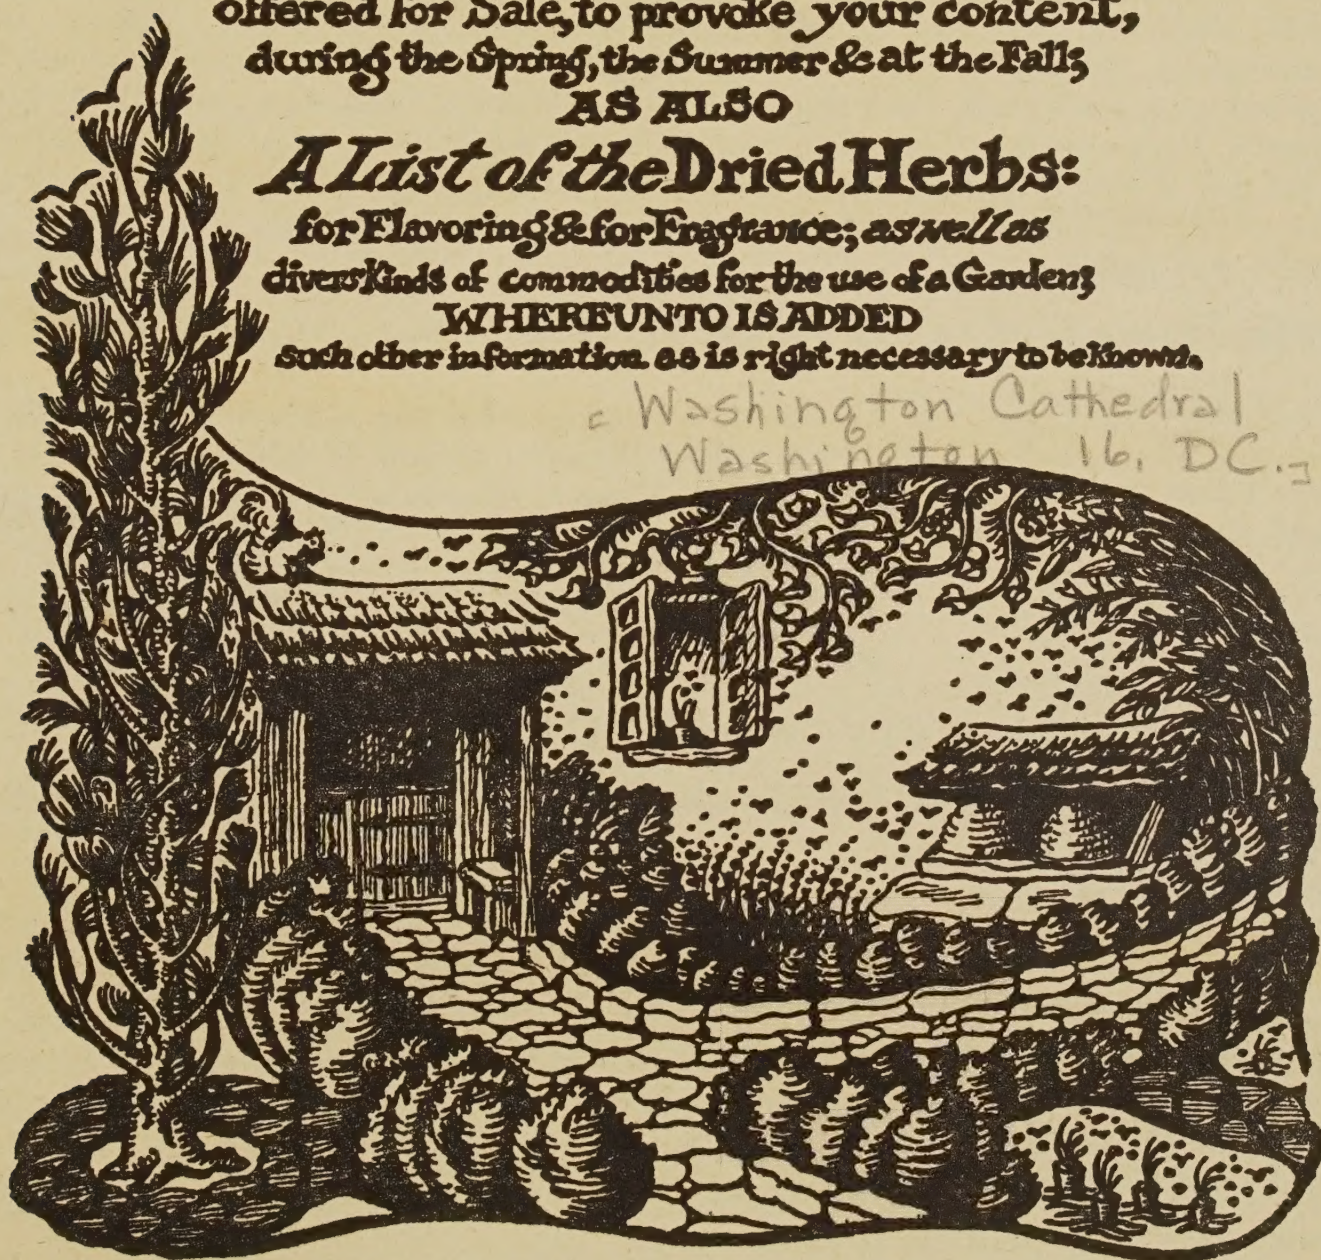 offered for Sale, to provoke your content,
during the Spring, the Summer & at the Fall;
AS ALSO
A List of the Dried Herbs:
for Flavoring & for Fragrance; as well as
divers Kinds of commodities for the use of a Garden;
WHEREUNTO IS ADDED
such other information as is right necessary to be known.
[Washington Cathedral
Washington 16, DC.]